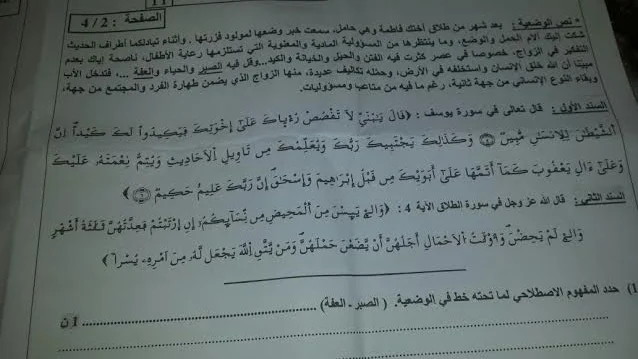 الصفحة : 4/2
* نص الوضعية : بعد شهر من طلاق أختك فاطمة وهي حامل، سمعت خبر وضعها لمولود فزرتها . وأثناء تبادلكما أطراف الحديث
شكت إليك آلام الحمل والوضع، وما ينتظرها من المسؤولية المادية والمعنوية التي تستلزمها رعاية الأطفال، ناصحة إياك بعدم
التفكير في الزواج، خصوصا في عصر كثرت فيه الفتن والحيل والخيانة والكيد...وقل فيه الصبر والحياء والعفة ...، فتدخل الأب
مبينا أن الله خلق الإنسان واستخلفه في الأرض، وحمله تكاليف عديدة، منها الزواج الذي يضمن طهارة الفرد والمجتمع من جهة،
وبقاء النوع الإنساني من جهة ثانية، رغم ما فيه من متاعب ومسؤوليات.
السند الأول : قال تعالى في سورة يوسف : ﴿قَالَ يَٰبُنَيِّ لَا تَقْصُصْ رُءْيَاكَ عَلَىٰٓ إِخْوَتِكَ فَيَكِيدُوا۟ لَكَ كَيْداً اِنَّ
اَلشَّيْطَٰنَ لِلِانسَٰنِ عَدُوٌّ مُّبِينٌ ۝ وَكَذَٰلِكَ يَجْتَبِيكَ رَبُّكَ وَيُعَلِّمُكَ مِن تَاوِيلِ اِلَاحَادِيثِ وَيُتِمُّ نِعْمَتَهُۥ عَلَيْكَ
وَعَلَىٰٓ ءَالِ يَعْقُوبَ كَمَآ أَتَمَّهَا عَلَىٰٓ أَبَوَيْكَ مِن قَبْلُ إِبْرَٰهِيمَ وَإِسْحَٰقَ إِنَّ رَبَّكَ عَلِيمٌ حَكِيمٌ ۝﴾
السند الثاني : قال الله عز وجل في سورة الطلاق الآية 4 : ﴿وَالِۓ يَئِسْنَ مِنَ اَلْمَحِيضِ مِن نِّسَآئِكُمُۥٓ إِنِ اِرْتَبْتُمْ فَعِدَّتُهُنَّ ثَلَٰثَةُ أَشْهُرٍ
وَالِۓ لَمْ يَحِضْنَ وَأُوْلَٰتُ اُلَاحْمَالِ أَجَلُهُنَّ أَنْ يَّضَعْنَ حَمْلَهُنَّ وَمَنْ يَّتَّقِ اِللَّهَ يَجْعَل لَّهُۥ مِنَ اَمْرِهِۦ يُسْراً﴾
1) حدد المفهوم الاصطلاحي لما تحته خط في الوضعية. ( الصبر - العفة) ............................ 1 ن